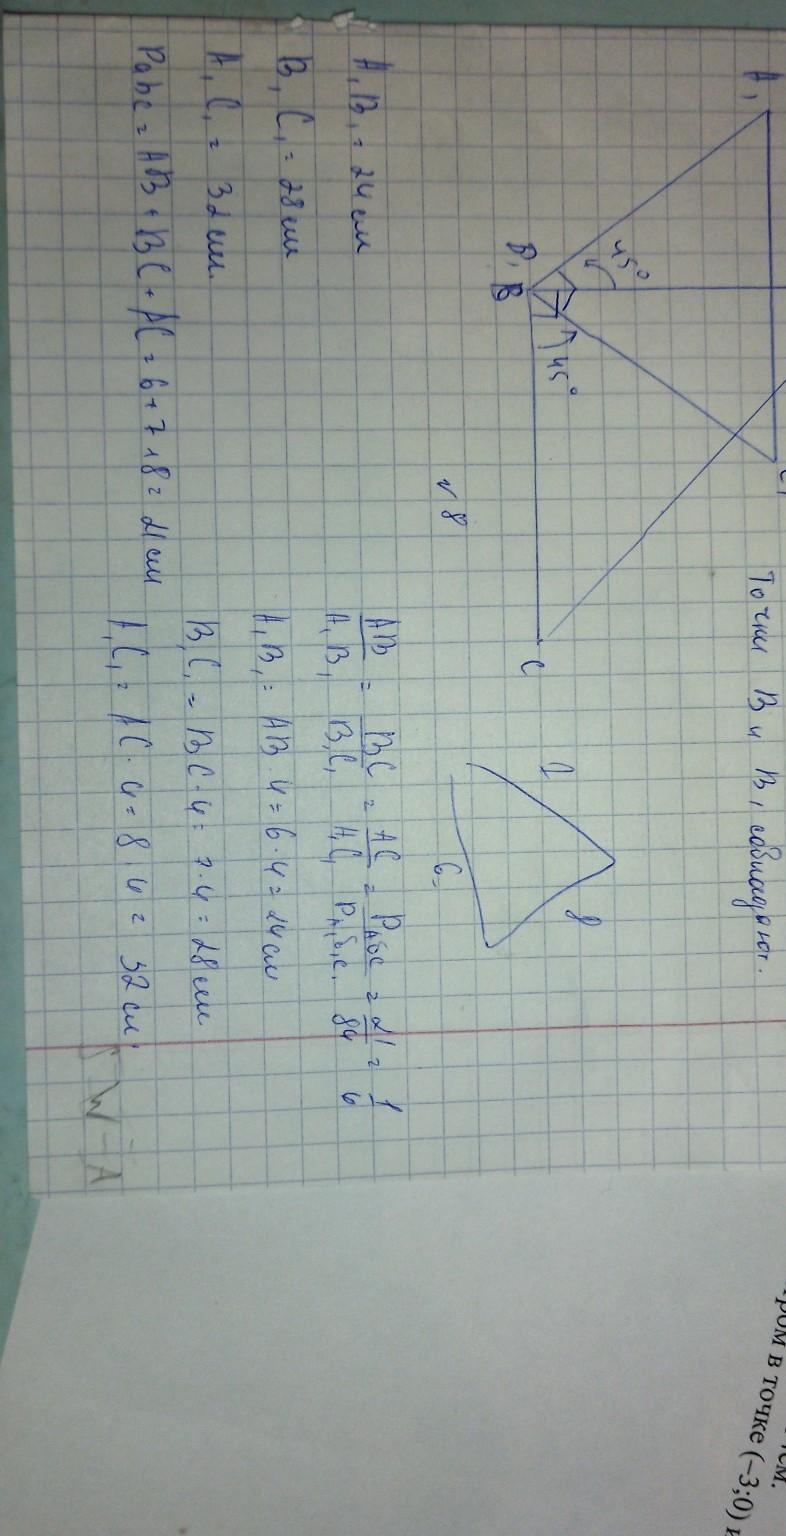 A₁
C₁
45°
45°
B₁
B
C
Точки B и B₁ совпадают.
№8
A₁B₁ = 24 см
B₁C₁ = 28 см
A₁C₁ = 32 см.
Pabc = AB + BC + AC = 6 + 7 + 8 = 21 см
AB/A₁B₁ = BC/B₁C₁ = AC/A₁C₁ = PABC/PA₁B₁C₁ = 21/84 = 1/6
A₁B₁ = AB 4 = 6 · 4 = 24 см
B₁C₁ = BC · 4 = 7 · 4 = 28 см
A₁C₁ = AC · 4 = 8 · 4 = 32 см
см.
ром в точке (–3;0) и